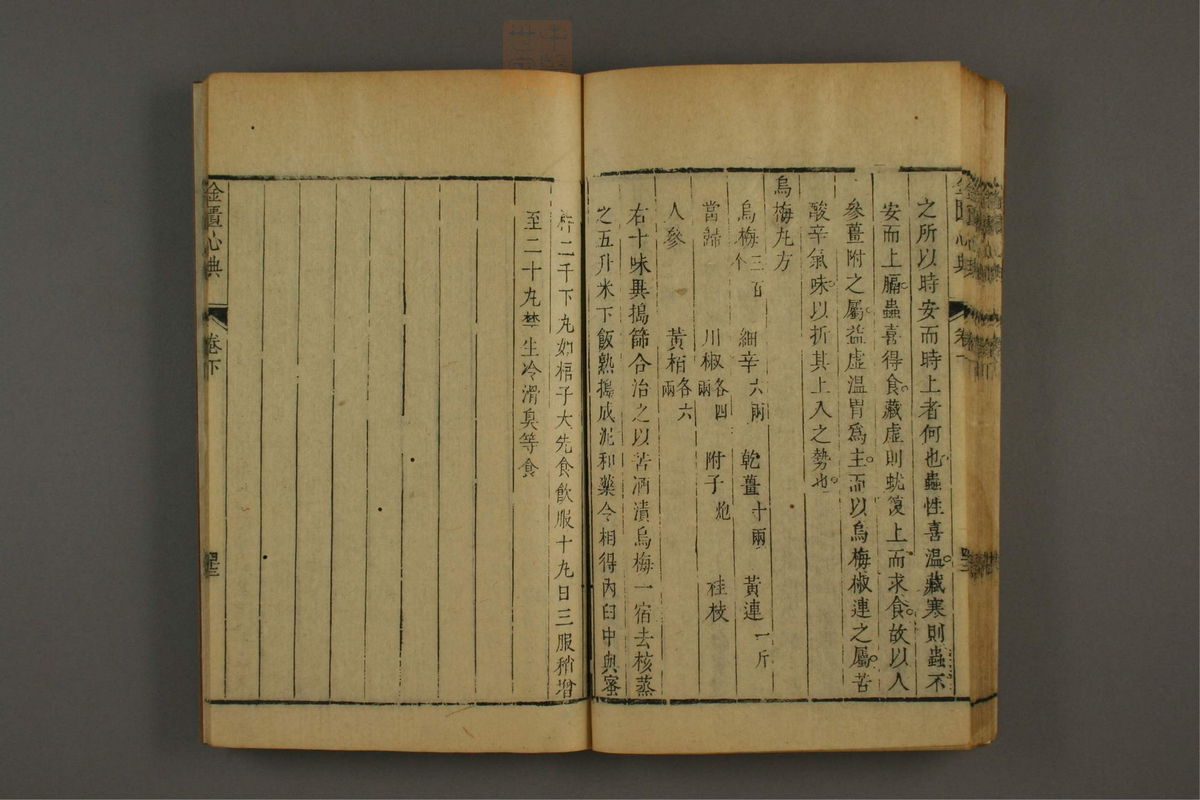 之所以時安而時上者何也蟲性喜温藏寒則蟲不
安而上膈蟲喜得食藏虛則蚘復上而求食故以人
參薑附之屬益虛温胃為主而以烏梅椒連之屬苦
酸辛氣味以折其上入之勢也
烏梅丸方
烏梅三百个 細辛六兩 乾薑十兩 黃連一斤
當歸 川椒各四兩 附子炮 桂枝
人參 黃栢各六兩
右十味異搗篩合治之以苦酒漬烏梅一宿去核蒸
之五升米下飯熟搗成泥和藥令相得內臼中與蜜
杵二千下丸如梧子大先食飲服十丸日三服稍增
至二十丸禁生冷滑臭等食
金匱心典 卷下